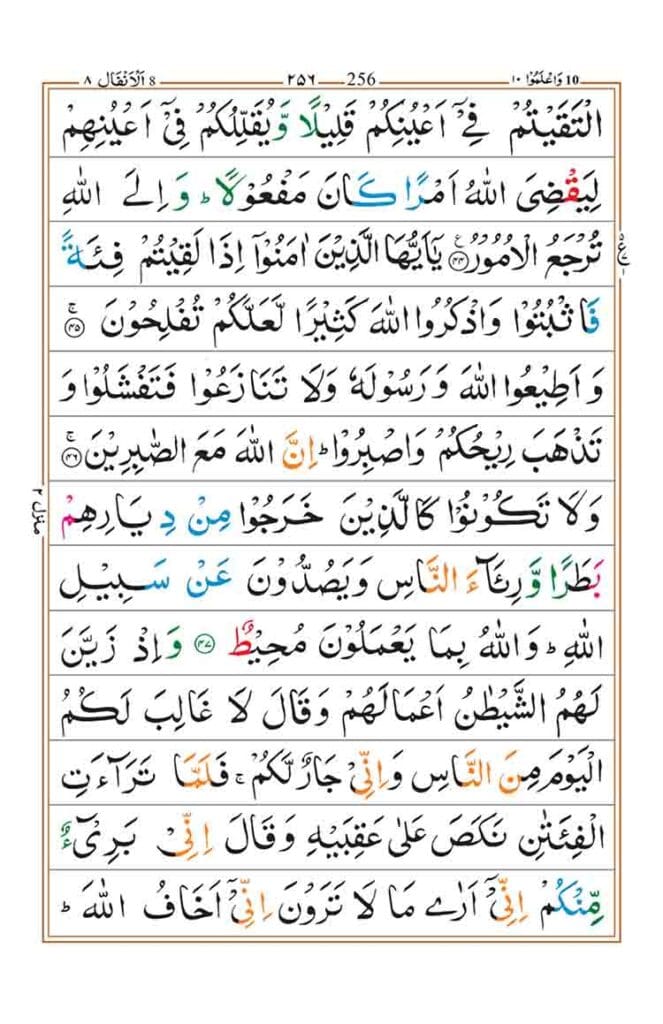 10 وَاعْلَمُوْٓا ١٠ 256 ٢٥٦ 8 اَلْاَنْفَال ٨
الْتَقَيْتُمْ فِيْٓ اَعْيُنِكُمْ قَلِيْلًا وَّيُقَلِّلُكُمْ فِيْٓ اَعْيُنِهِمْ
لِيَقْضِىَ اللّٰهُ اَمْرًا كَانَ مَفْعُوْلًا ؕ وَ اِلَى اللّٰهِ
تُرْجَعُ الْاُمُوْرُ ﴿۴۴﴾ يٰۤاَيُّهَا الَّذِيْنَ اٰمَنُوْۤا اِذَا لَقِيْتُمْ فِئَةً
فَاثْبُتُوْا وَاذْكُرُوا اللّٰهَ كَثِيْرًا لَّعَلَّكُمْ تُفْلِحُوْنَ ۚ ﴿۴۵﴾
وَ اَطِيْعُوا اللّٰهَ وَ رَسُوْلَهٗ وَلَا تَنَازَعُوْا فَتَفْشَلُوْا وَ
تَذْهَبَ رِيْحُكُمْ وَاصْبِرُوْا ؕ اِنَّ اللّٰهَ مَعَ الصّٰبِرِيْنَ ۚ ﴿۴۶﴾
وَلَا تَكُوْنُوْا كَالَّذِيْنَ خَرَجُوْا مِنْ دِيَارِهِمْ
بَطَرًا وَّ رِئَآءَ النَّاسِ وَيَصُدُّوْنَ عَنْ سَبِيْلِ
اللّٰهِ ؕ وَاللّٰهُ بِمَا يَعْمَلُوْنَ مُحِيْطٌ ﴿۴۷﴾ وَ اِذْ زَيَّنَ
لَهُمُ الشَّيْطٰنُ اَعْمَالَهُمْ وَقَالَ لَا غَالِبَ لَكُمُ
الْيَوْمَ مِنَ النَّاسِ وَاِنِّىْ جَارٌ لَّكُمْ ۚ فَلَمَّا تَرَآءَتِ
الْفِئَتٰنِ نَكَصَ عَلٰى عَقِبَيْهِ وَ قَالَ اِنِّىْ بَرِىْٓءٌ
مِّنْكُمْ اِنِّىْۤ اَرٰى مَا لَا تَرَوْنَ اِنِّىْۤ اَخَافُ اللّٰهَ ؕ
منزل ٢